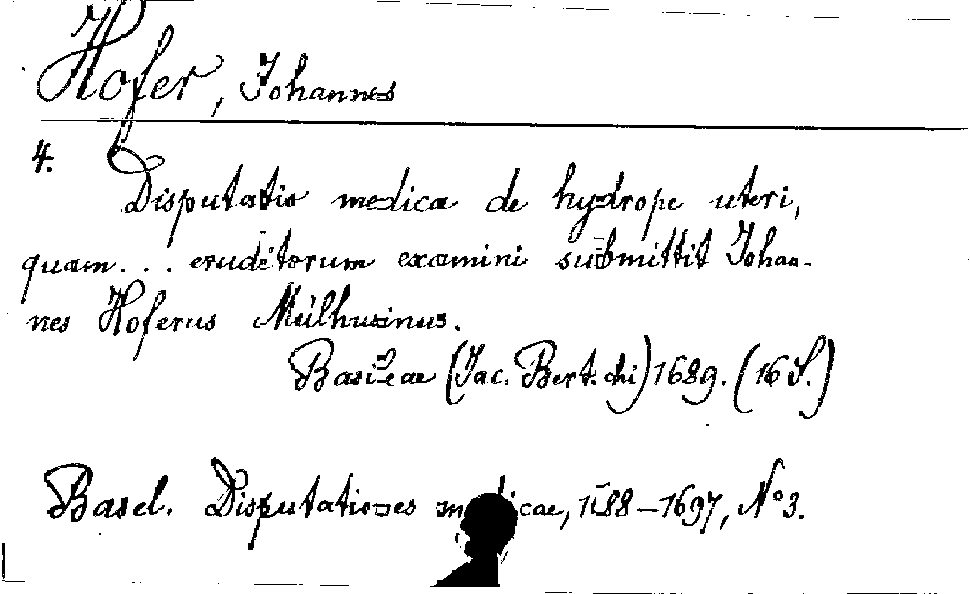 Hofer, Johannes
4.
Disputatio medica de hydrope uteri,
quam... eruditorum examini submittit Johan-
nes Hoferus Mülhusinus.
Basileae (Jac. Bertschi) 1689. (16 S.)
Basel. Disputationes medicae, 1688-1697, No 3.